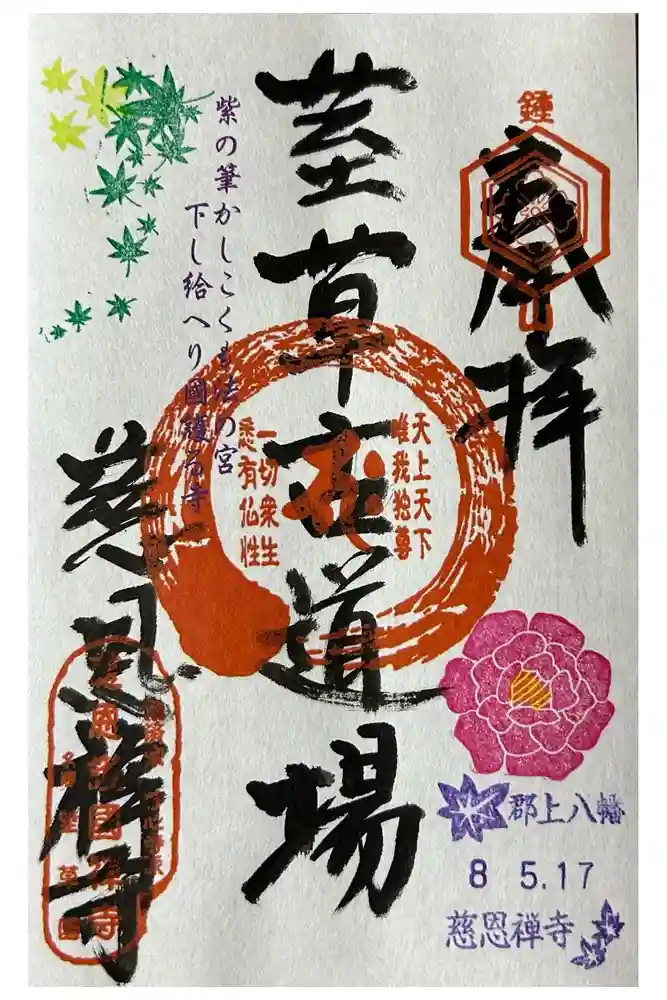 鍾
奉拝
荎草
道場
天上天下
唯我独尊
一切衆生
悉有仏性
紫の筆かしこくも法の宮
下し給へり國護る寺
慈恩禅寺
荎草園
郡上八幡
8 5.17
慈恩禅寺